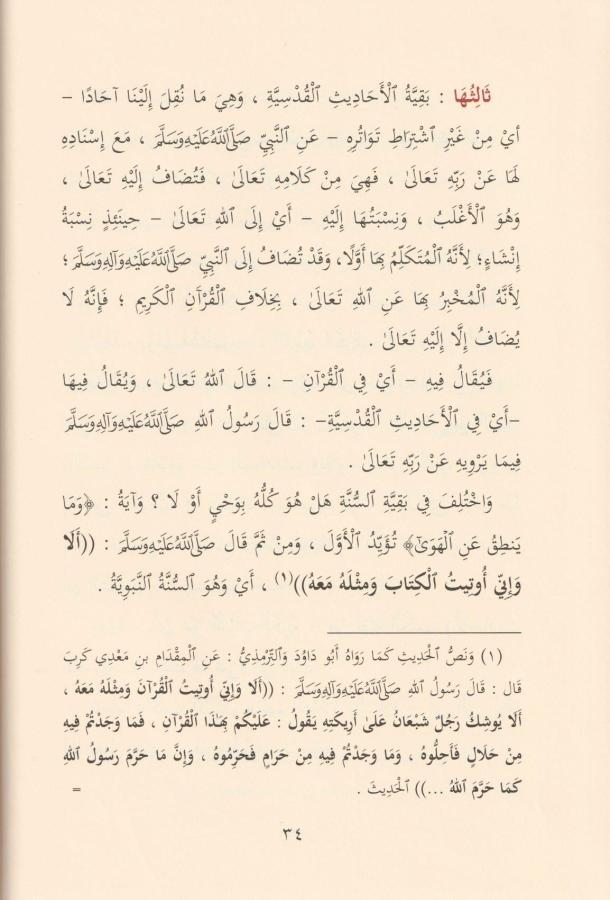 ثَالِثُهَا : بَقِيَّةُ ٱلْأَحَادِيثِ ٱلْقُدْسِيَّةِ ، وَهِيَ مَا نُقِلَ إِلَيْنَا آحَادًا –
أَيْ مِنْ غَيْرِ ٱشْتِرَاطِ تَوَاتُرِهِ – عَنِ ٱلنَّبِيِّ صَلَّىٱللَّهُعَلَيْهِوَسَلَّمَ ، مَعَ إِسْنَادِهِ
لَهَا عَنْ رَبِّهِ تَعَالَىٰ ، فَهِيَ مِنْ كَلَامِهِ تَعَالَىٰ ، فَتُضَافُ إِلَيْهِ تَعَالَىٰ ،
وَهُوَ ٱلْأَغْلَبُ ، وَنِسْبَتُهَا إِلَيْهِ – أَيْ إِلَى ٱللهِ تَعَالَىٰ – حِينَئِذٍ نِسْبَةُ
إِنْشَاءٍ؛ لِأَنَّهُ ٱلْمُتَكَلِّمُ بِهَا أَوَّلًا، وَقَدْ تُضَافُ إِلَى ٱلنَّبِيِّ صَلَّىٱللَّهُعَلَيْهِوَآلِهِوَسَلَّمَ ؛
لِأَنَّهُ ٱلْمُخْبِرُ بِهَا عَنِ ٱللهِ تَعَالَىٰ ، بِخِلَافِ ٱلْقُرْآنِ ٱلْكَرِيمِ ؛ فَإِنَّهُ لَا
يُضَافُ إِلَّا إِلَيْهِ تَعَالَىٰ .
فَيُقَالُ فِيهِ – أَيْ فِي ٱلْقُرْآنِ – : قَالَ ٱللهُ تَعَالَىٰ ، وَيُقَالُ فِيهَا
–أَيْ فِي ٱلْأَحَادِيثِ ٱلْقُدْسِيَّةِ– : قَالَ رَسُولُ ٱللهِ صَلَّىٱللَّهُعَلَيْهِوَآلِهِوَسَلَّمَ
فِيمَا يَرْوِيهِ عَنْ رَبِّهِ تَعَالَىٰ .
وَٱخْتُلِفَ فِي بَقِيَّةِ ٱلسُّنَّةِ هَلْ هُوَ كُلُّهُ بِوَحْيٍ أَوْ لَا ؟ وَآيَةُ : ﴿وَمَا
يَنطِقُ عَنِ ٱلْهَوَىٰٓ﴾ تُؤَيِّدُ ٱلْأَوَّلَ ، وَمِنْ ثَمَّ قَالَ صَلَّىٱللَّهُعَلَيْهِوَسَلَّمَ : ((أَلَا
وَإِنِّي أُوتِيتُ ٱلْكِتَابَ وَمِثْلَهُ مَعَهُ))(١) ، أَيْ وَهُوَ ٱلسُّنَّةُ ٱلنَّبَوِيَّةُ .
(١) وَنَصُّ ٱلْحَدِيثِ كَمَا رَوَاهُ أَبُو دَاوُدَ وَٱلتِّرْمِذِيُّ : عَنِ ٱلْمِقْدَامِ بنِ مَعْدِي كَرِبَ
قَالَ : قَالَ رَسُولُ ٱللهِ صَلَّىٱللَّهُعَلَيْهِوَآلِهِوَسَلَّمَ : ((أَلَا وَإِنِّي أُوتِيتُ ٱلْقُرْآنَ وَمِثْلَهُ مَعَهُ ،
أَلَا يُوشِكُ رَجُلٌ شَبْعَانُ عَلَىٰ أَرِيكَتِهِ يَقُولُ : عَلَيْكُمْ بِهَٰذَا ٱلْقُرْآنِ ، فَمَا وَجَدْتُمْ فِيهِ
مِنْ حَلَالٍ فَأَحِلُّوهُ ، وَمَا وَجَدْتُمْ فِيهِ مِنْ حَرَامٍ فَحَرِّمُوهُ ، وَإِنَّ مَا حَرَّمَ رَسُولُ ٱللهِ
كَمَا حَرَّمَ ٱللهُ ...)) ٱلْحَدِيثَ . =
٣٤